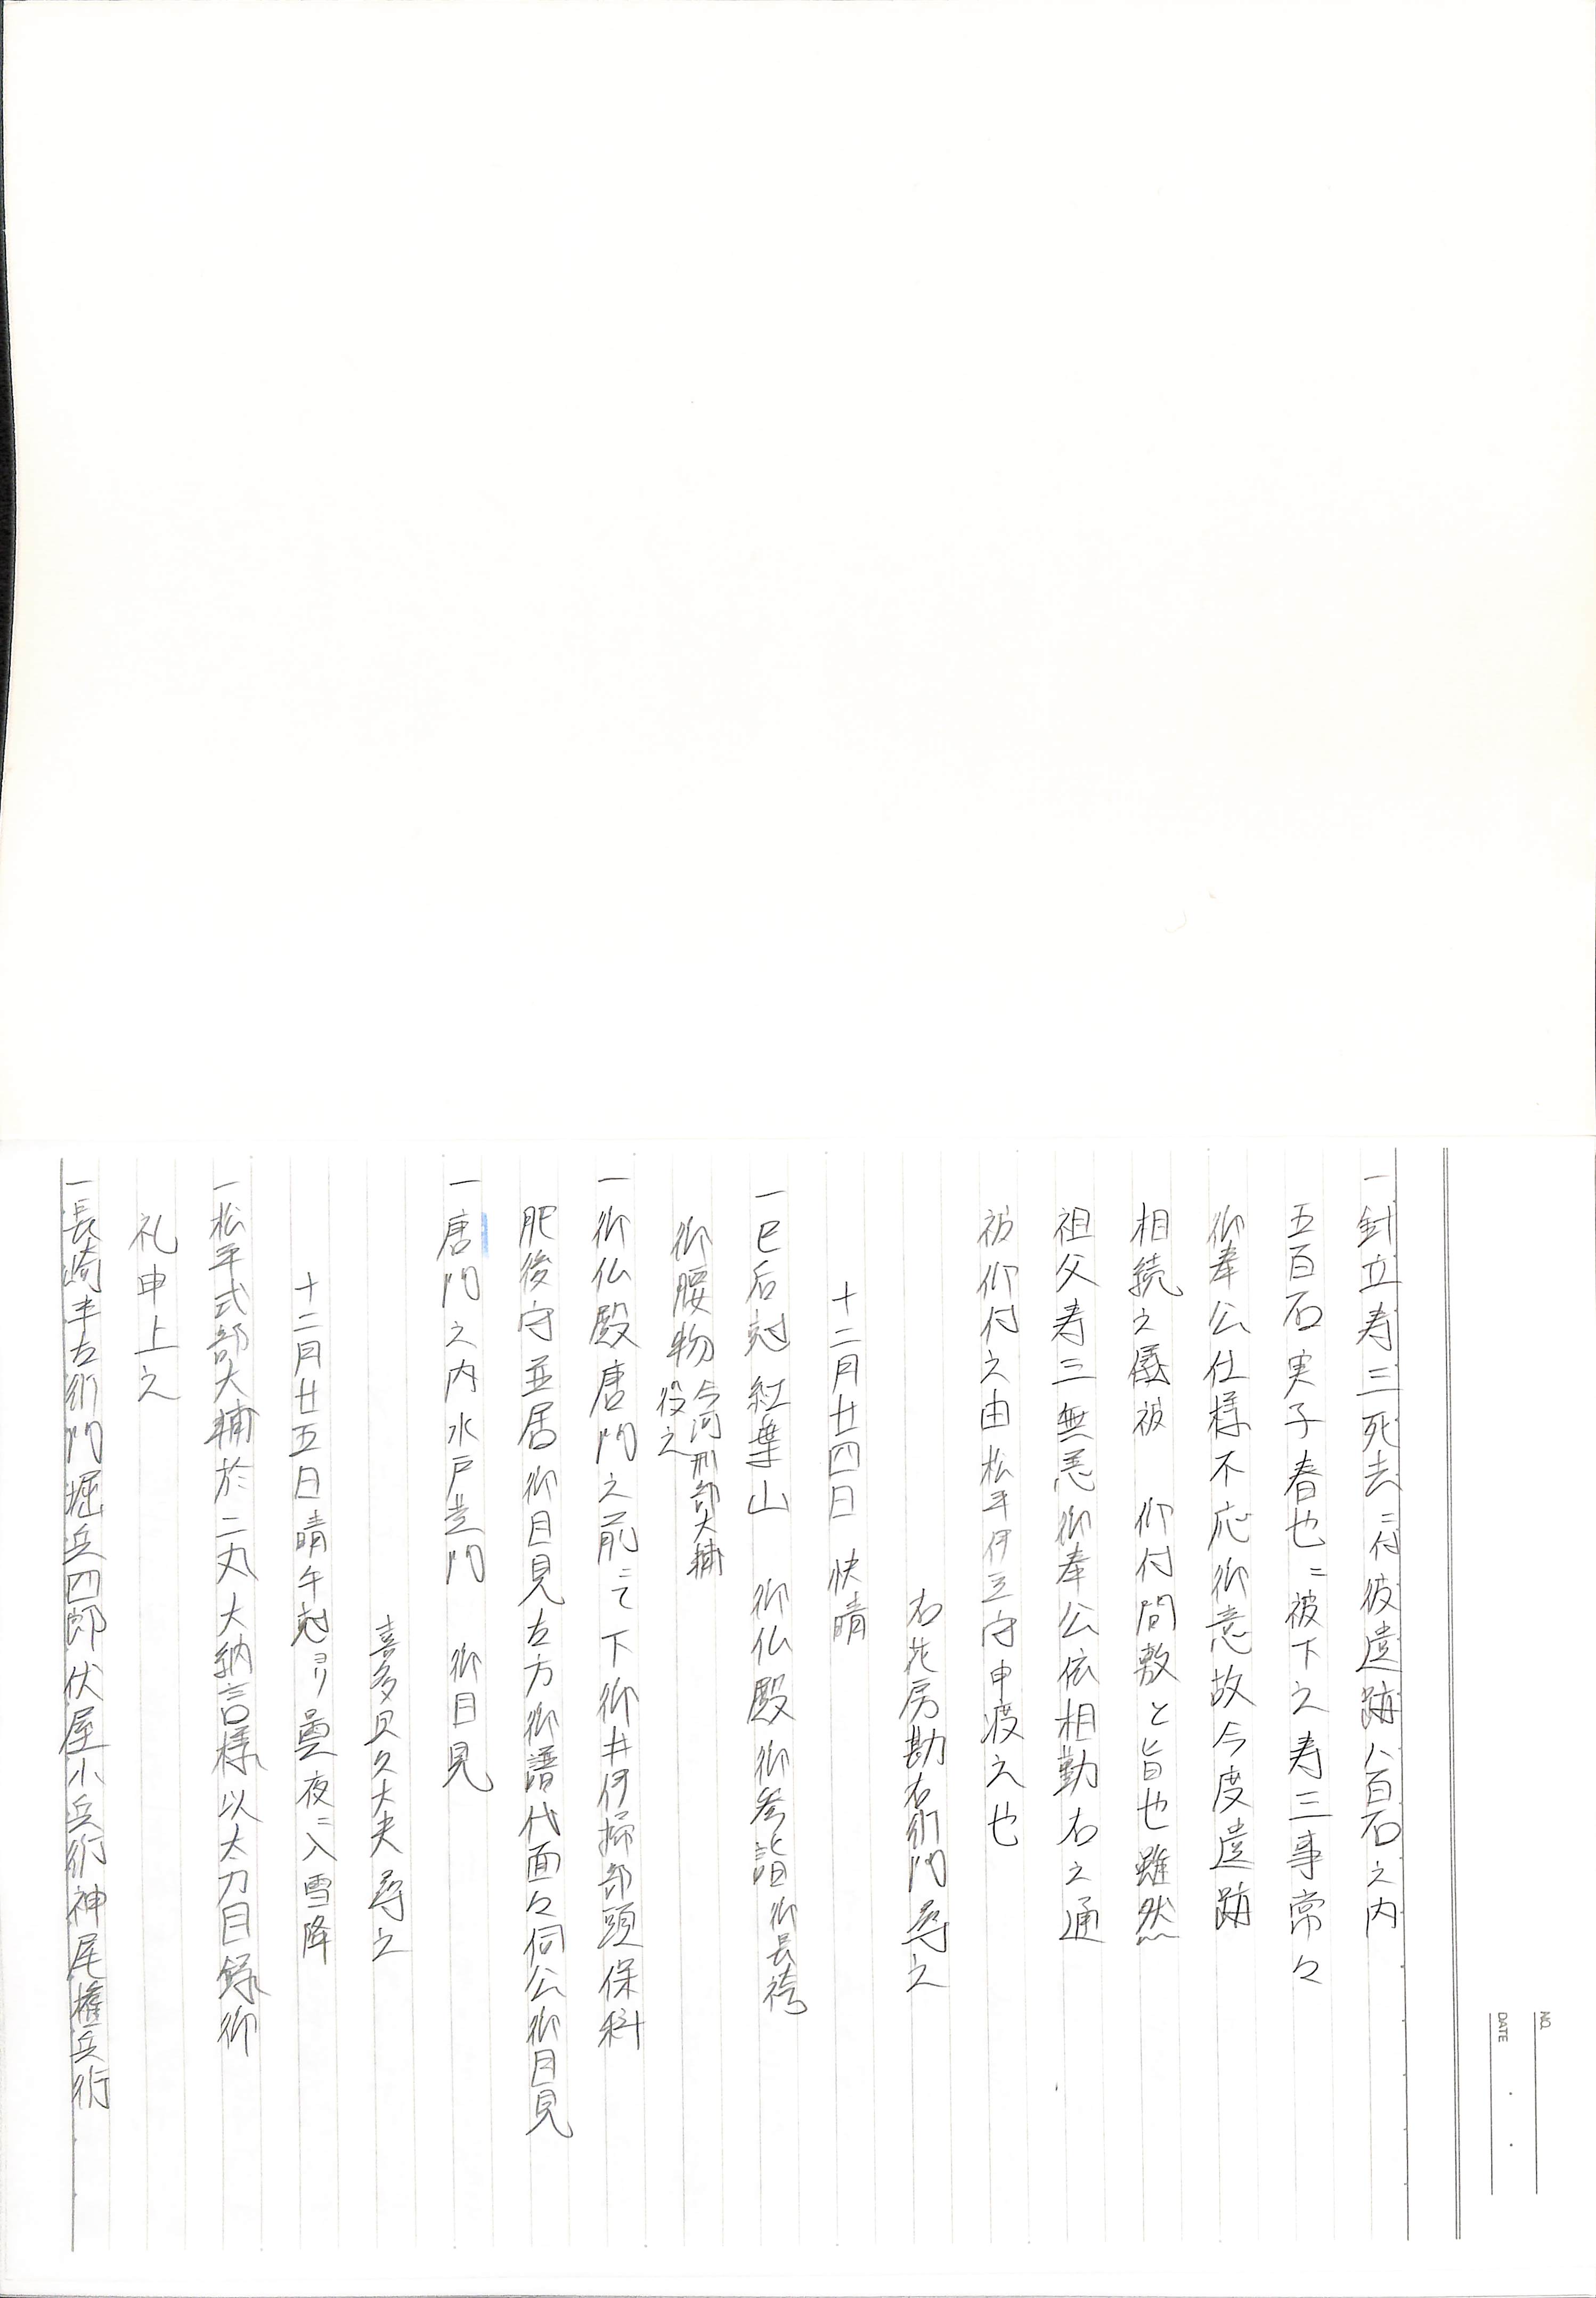 NO.
DATE
一針立寿三死去ニ付彼遺跡八百石之内
五百石実子春也ニ被下之寿三事常々
御奉公仕様不応御意故今度遺跡
相続之儀被　仰付間敷と旨也雖然
祖父寿三無恙御奉公依相勤右之通
被仰付之由松平伊豆守申渡之也
右花房勘右衛門尋之
十二月廿四日　快晴
一巳后刻紅葉山　御仏殿御参詣御長袴
御腰物今河刑部大輔役之
一御仏殿唐門之前ニて下御井伊掃部頭保科
肥後守並居御目見左方御譜代面々伺公御目見
一唐門之内水戸黄門　御目見
喜多見久大夫尋之
十二月廿五日晴午刻ヨリ曇夜ニ入雪降
一松平式部大輔於二丸大納言様以太刀目録御
礼申上之
一長崎半左衛門堀兵四郎伏屋小兵衛神尾権兵衛